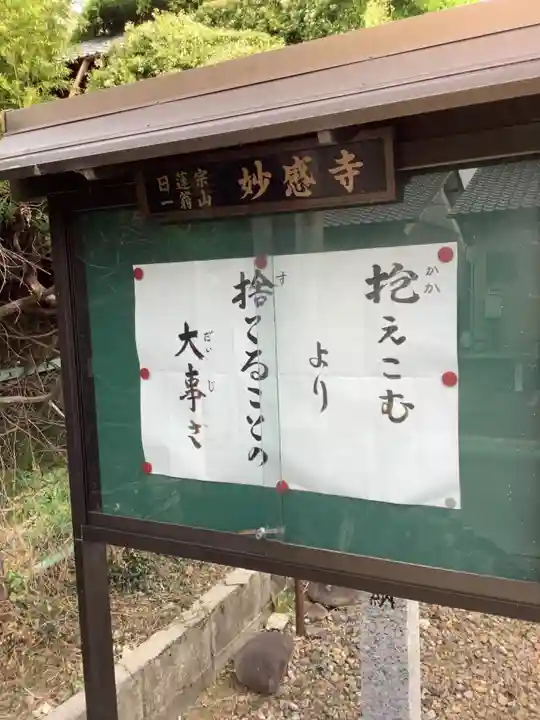 日蓮宗
一翁山
妙感寺
抱えこむ
かか
より
捨てることの
す
大事さ
だいじ
納